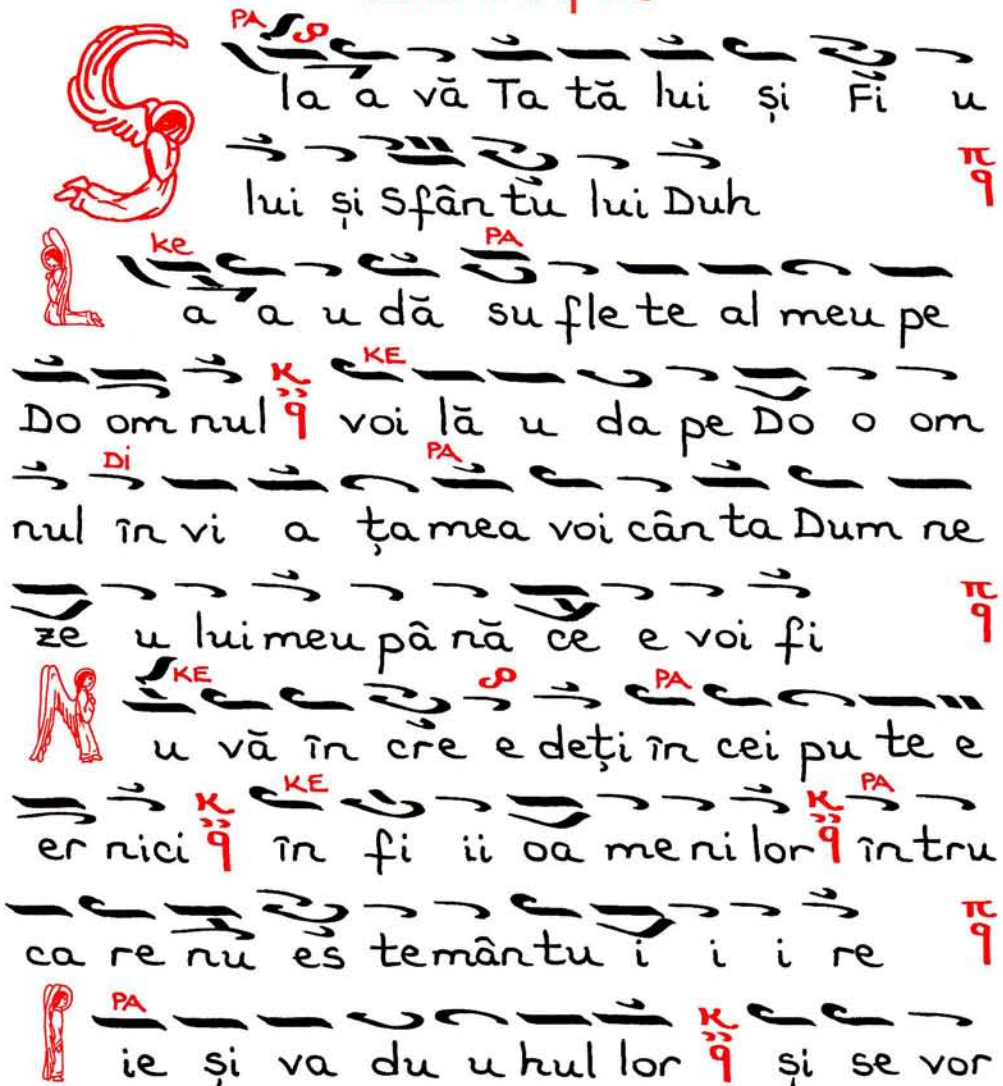 PA
S la a vă Ta tă lui și Fi u
lui și Sfân tu lui Duh π q
ke PA
L a a u dă su fle te al meu pe
KE
Do om nul K q voi lă u da pe Do o om
Di PA
nul în vi a ța mea voi cân ta Dum ne
ze u lui meu pâ nă ce e voi fi π q
KE PA
N u vă în cre e deți în cei pu te e
KE PA
er nici K q în fi ii oa me ni lor K q în tru
ca re nu es te mân tu i i i re π q
PA
I ie și va du u hul lor K q și se vor